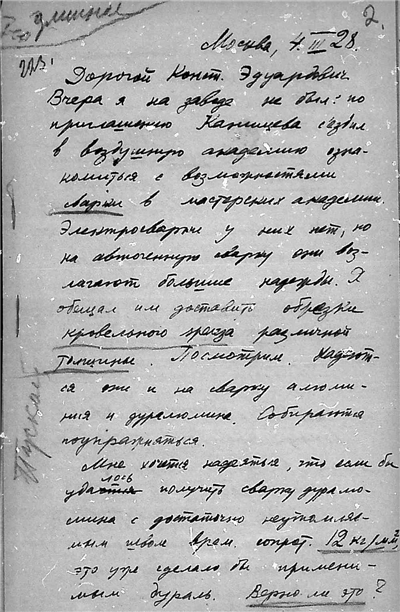 2.
223.
Москва, 4 III 28.
Дорогой Конст. Эдуардович.
Вчера я на заводе не был: по
приглашению Канищева съездил
в воздушную академию озна-
комиться с возможностями
сварки в мастерских академии.
Электросварки у них нет, но
на автогенную сварку они воз-
лагают большие надежды. Я
обещал им доставить обрезки
кровельного железа различной
толщины. Посмотрим. Надеют-
ся они и на сварку алюми-
ния и дуралюмина. Собираются
поупражняться.
Мне хочется надеяться, что если бы
удалось получить сварку дуралю-
мина с достаточно
швом врем. сопрот. 12 кг/мм²,
это уже сделало бы примени-
мым дураль. Верно ли это?
Пускай